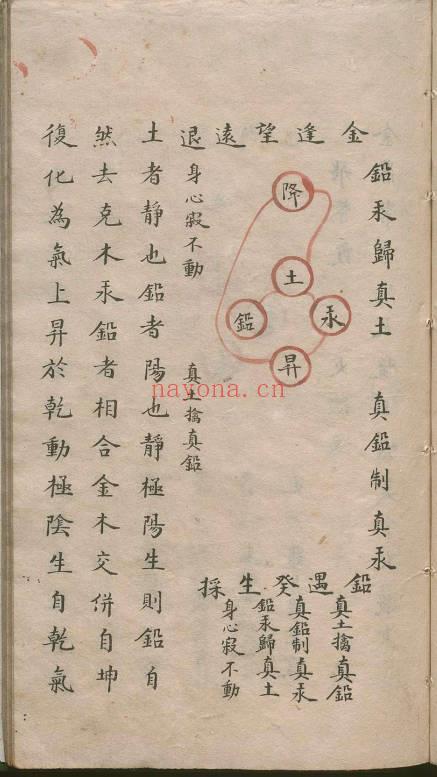 鉛汞歸真土 真鉛制真汞
金逢望遠退
降
土
鉛
汞
昇
鉛遇癸生採
真土擒真鉛
真鉛制真汞
鉛汞歸真土
身心寂不動
身心寂不動 真土擒真鉛
土者靜也鉛者陽也靜極陽生則鉛自
然去克木汞鉛者相合金木交併自坤
復化為氣上昇於乾動極陰生自乾氣
nayona.cn